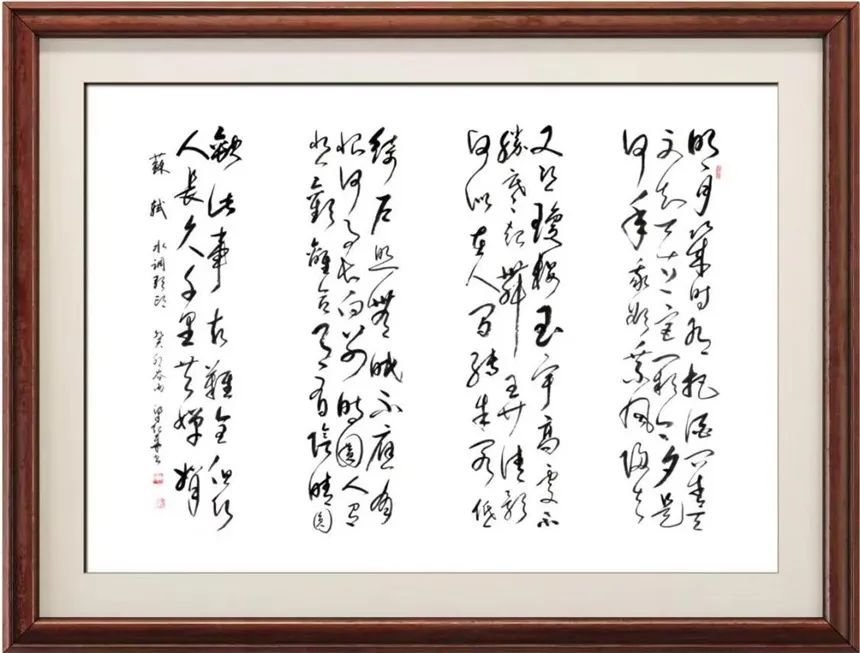 明月幾时有把酒问青天
不知天上宫阙今夕是
何年我欲乘風归去
又恐瓊樓玉宇高處不
勝寒起舞弄清影
何似在人间转朱阁低
綺户照無眠不應有
恨何事长向别時圆人有
悲歡離合月有陰晴圆
缺此事古難全但願
人長久千里共嬋娟
蘇軾 水调歌头 癸卯春